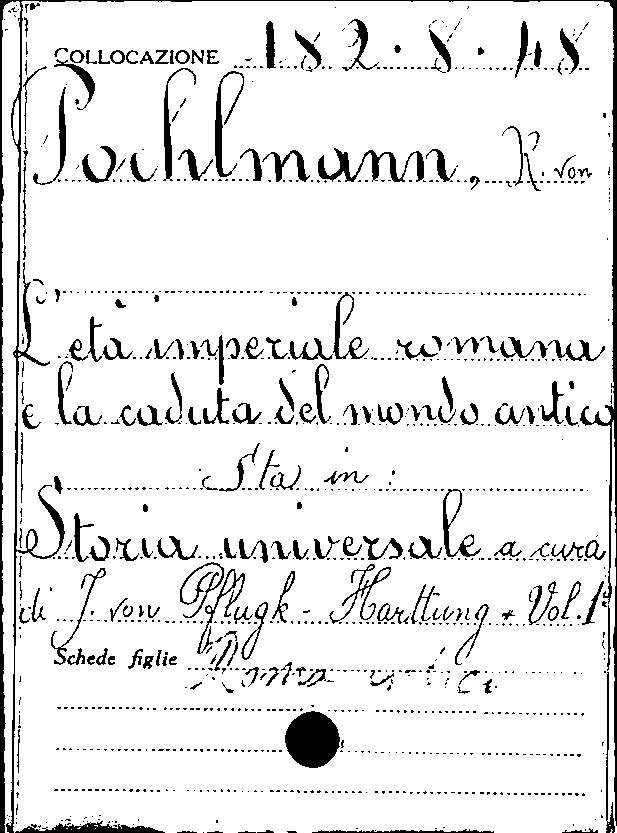 COLLOCAZIONE 182.8.48
Poehlmann, R. von
L'età imperiale romana
e la caduta del mondo antico
Sta in:
Storia universale a cura
di J. von Pflugk-Harttung + Vol. 1º
Schede figlie Roma antica